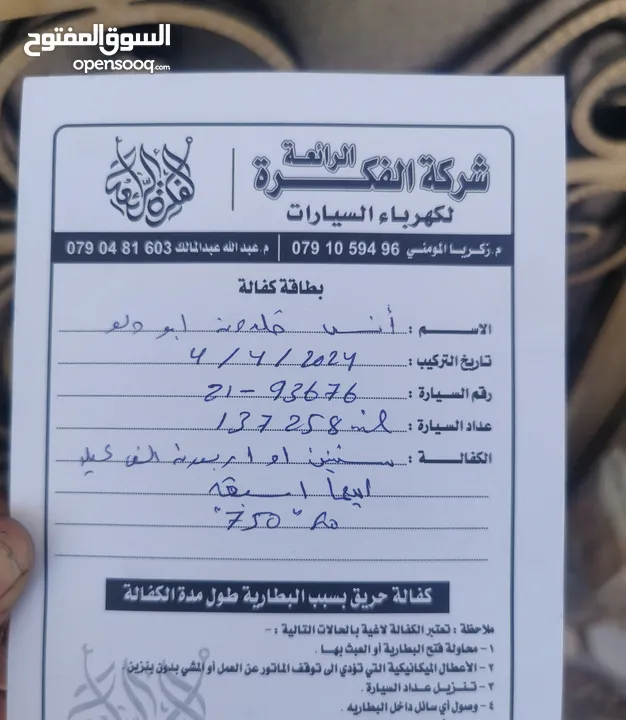 السوق المفتوح
opensooq.com
شركة الفكرة الرائعة
لكهرباء السيارات
الفكرة الرائعة
م. زكريا المومني 96 594 10 079 | م. عبدالله عبدالمالك 603 81 04 079
بطاقة كفالة
الاسم : أنس خلدون ابو دلو
تاريخ التركيب : 4 / 4 / 2024
رقم السيارة : 21-93676
عداد السيارة : 137258
الكفالة : سنتين او اربعون الف كيلو
ايهما اسبق
"750"
كفالة حريق بسبب البطارية طول مدة الكفالة
ملاحظة : تعتبر الكفالة لاغية بالحالات التالية :-
١- محاولة فتح البطارية أو العبث بها .
٢- الأعطال الميكانيكية التي تؤدي الى توقف الماتور عن العمل أو المشي بدون بنزين .
٣- تنزيل عداد السيارة .
٤- وصول أي سائل داخل البطاريه .